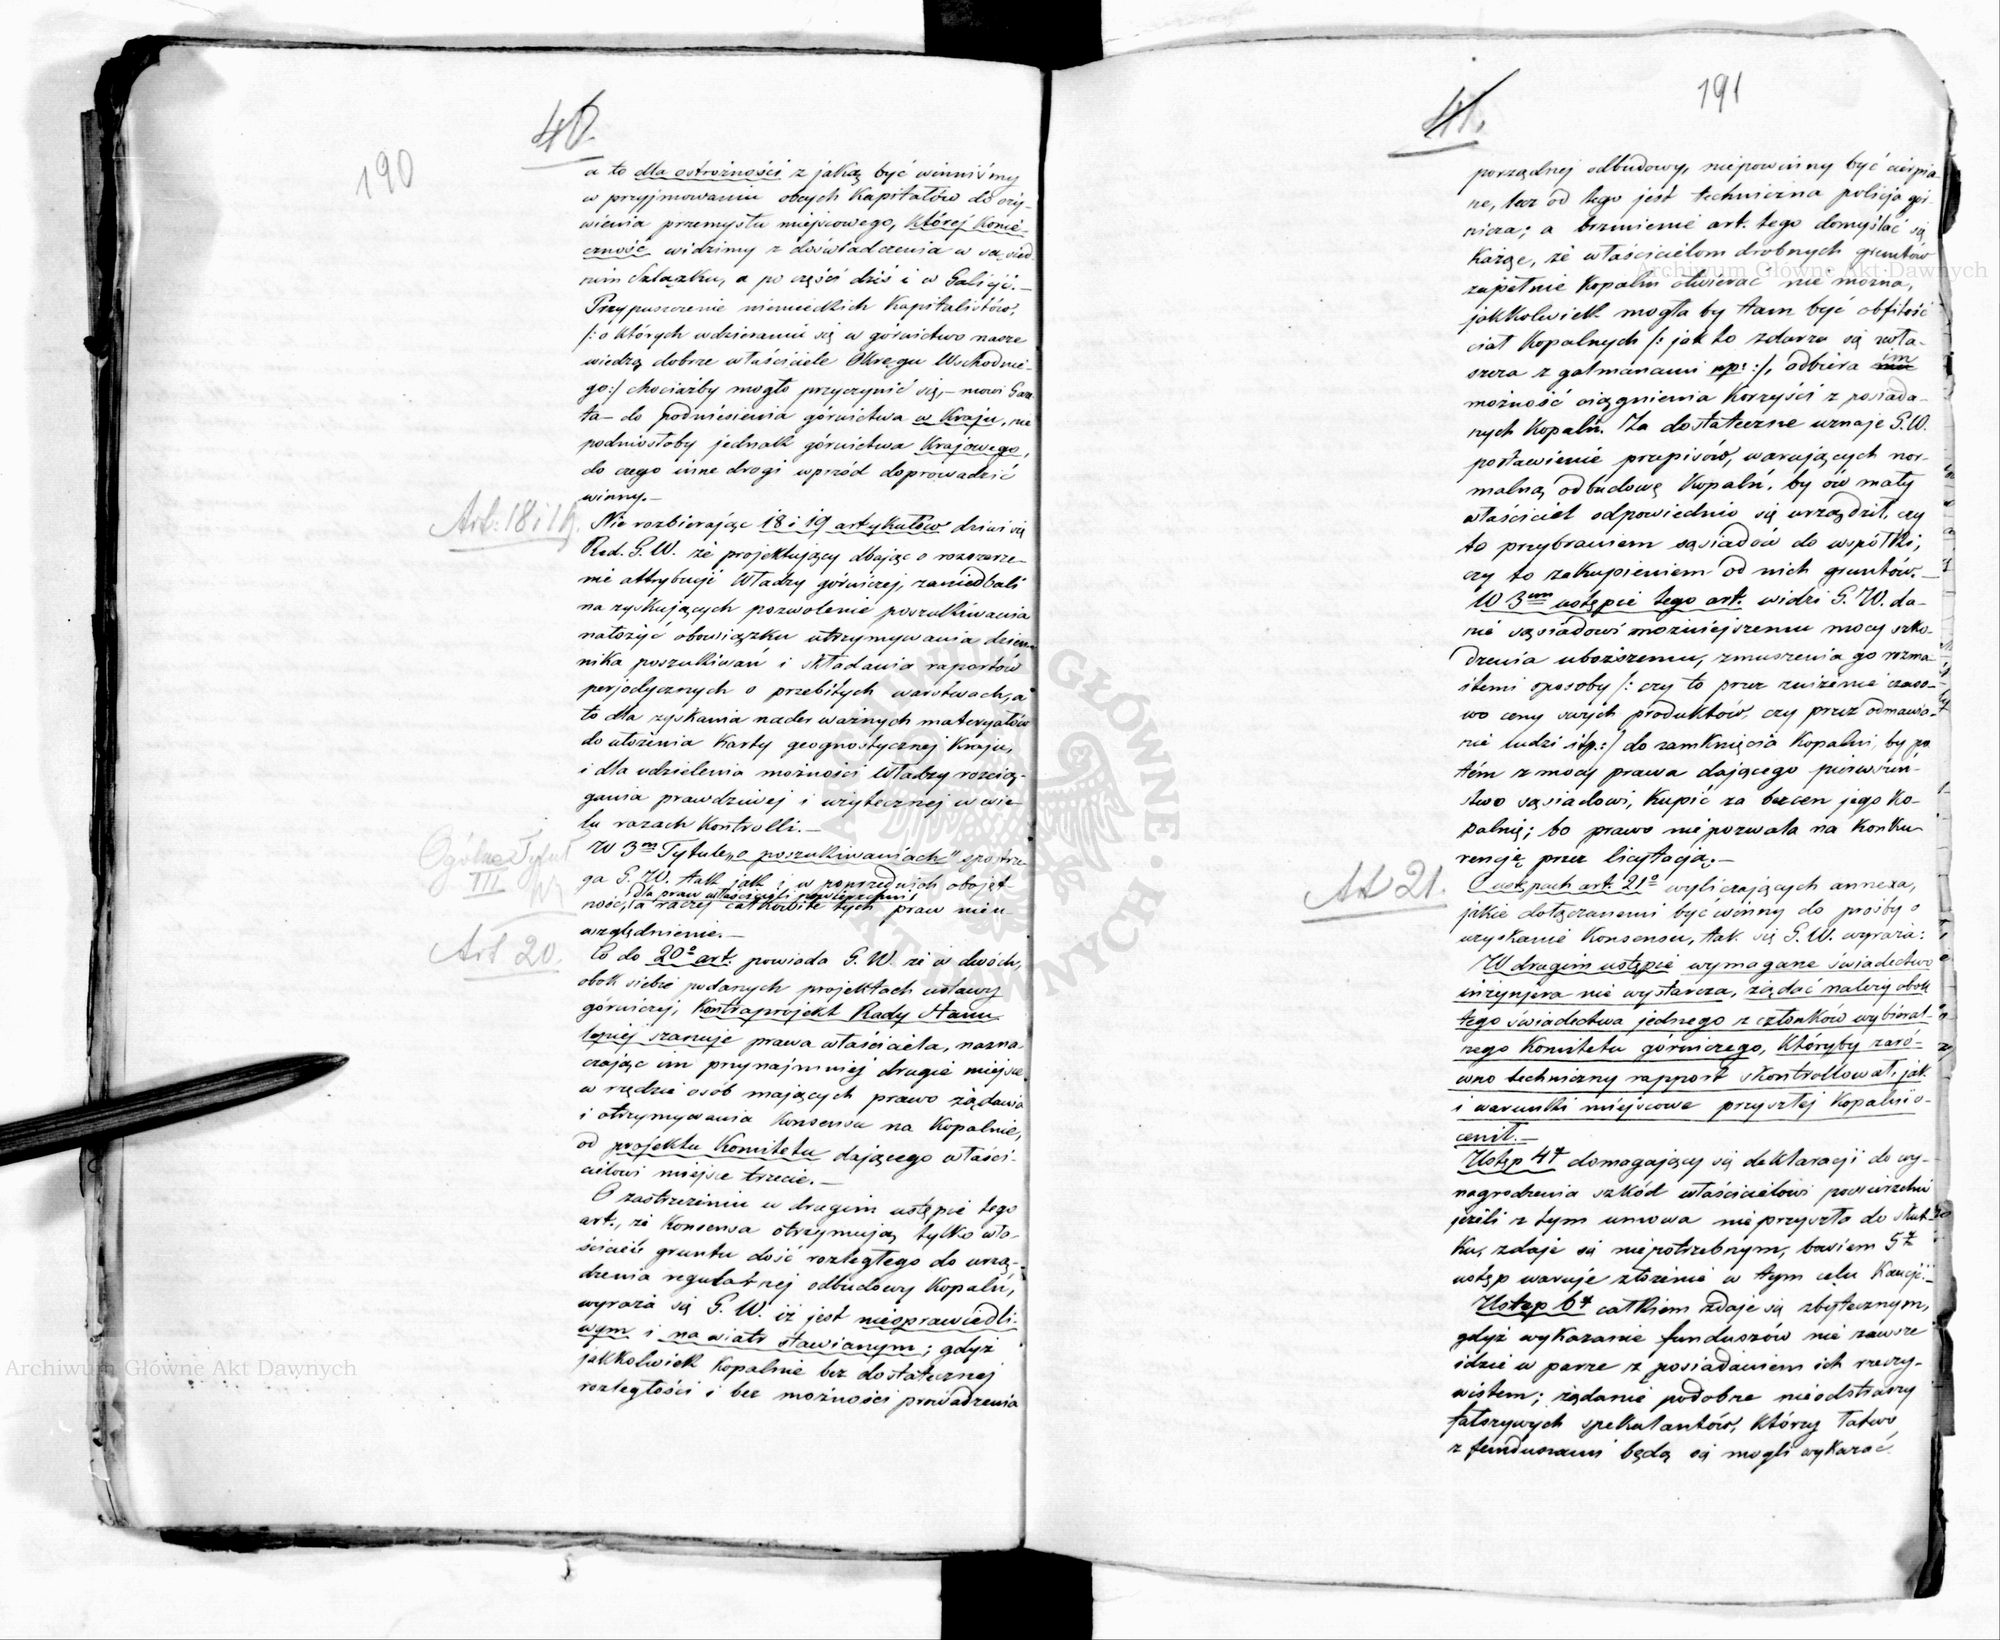 190
40.
a to dla ostrożności z jaką być winniśmy
w przyjmowaniu obcych Kapitałów do oży-
wienia przemysłu miejscowego, Której Konie-
czność widzimy z doświadczenia w sąsied-
nim Szlązku, a po części dziś i w Galicji.—
Przypuszczenie niemieckich Kapitalistów,
/: o których wdzieraniu się w górnictwo nasze
wiedzą dobrze właściciele Okręgu Wschodnie-
go:/ chociażby mogło przyczynić się,— mówi Gaze-
ta— do podniesienia górnictwa w Kraju, nie
podniosłoby jednak górnictwa Krajowego,
do czego inne drogi wprzód doprowadzić
winny.—
Art: 18 i 19.
Nie rozbierając 18 i 19 artykułów dziwi się
Red. G. W. że projektujący dbając o rozszerze-
nie attrybucji Władzy górniczej, zaniedbali
na zyskujących pozwolenie poszukiwania
nałożyć obowiązku utrzymywania dzien-
nika poszukiwań i składania raportów
perjodycznych o przebitych warstwach, a
to dla zyskania nader ważnych materyałów
do ułożenia Karty geognostycznej Kraju,
i dla udzielenia możności Władzy rozcią-
gania prawdziwej i użytecznej w wie-
lu razach Kontrolli.—
Ogólne Tytuł
III
W 3m Tytule „o poszukiwaniach" spostrze-
ga G. W. tak jak i w poprzednich obojęt-
dla praw właścicieli powierzchni,
ność, a raczej całkowite tych praw nieu-
względnienie.—
Art 20.
Co do 20o art. powiada G. W. że w dwóch,
obok siebie podanych projektach ustawy
górniczej, Kontraprojekt Rady Stanu
lepiej szanuje prawa właściciela, nazna-
czając im przynajmniej drugie miejsce
w rzędzie osób mających prawo żądania
i otrzymywania Konsensu na Kopalnie,
od projektu Komitetu dającego właści-
cielowi miejsce trzecie.—
O zastrzeżeniu w drugim ustępie tego
art., że Konsensa otrzymują tylko wła-
ściciele gruntu dość rozległego do urzą-
dzenia regularnej odbudowy Kopalń,
wyraża się G. W. iż jest niesprawiedli-
wym i na wiatr stawianym; gdyż
jakkolwiek Kopalnie bez dostatecznej
rozległości i bez możności prowadzenia
191
41.
porządnej odbudowy, niepowinny być cierpia-
ne, lecz od tego jest techniczna policja gór-
nicza; a brzmienie art. tego domyślać się
każąc, że właścicielom drobnych gruntów
zupełnie Kopalń otwierać nie można,
jakkolwiek mogła by tam być obfitość
ciał Kopalnych /: jak to zdarza się zwła-
szcza z galmanami np: :/, odbiera im
możność ciągnienia Korzyści z posiada-
nych Kopalń. Za dostateczne uznaje G. W.
postawienie przepisów, warujących nor-
malną odbudowę Kopalń, by ów mały
właściciel odpowiednio się urządził, czy
to przybraniem sąsiadów do współki,
czy to zakupieniem od nich gruntów.—
W 3im ustępie tego art. widzi G. W. da-
nie sąsiadowi możniejszemu mocy szko-
dzenia uboższemu, zmuszenia go rozma-
itemi sposoby /: czy to przez zniżenie czaso-
wo ceny swych produktów, czy przez odmawia-
nie ludzi itp:/ do zamknięcia Kopalni, by po
tém z mocy prawa dającego pierwszeń-
stwo sąsiadowi, Kupić za bezcen jego Ko-
palnię; bo prawo niepozwala na Konku-
rencję przez licytacją.—
At 21.
O ustępach art. 21o wyliczających annexa,
jakie dołączanemi być winny do prośby o
uzyskanie Konsensu, tak się G. W. wyraża:
W drugim ustępie wymagane świadectwo
inżynjera nie wystarcza, żądać należy obok
tego świadectwa jednego z członków wybieral-
nego Komitetu górniczego, Któryby zaró-
wno techniczny rapport skontrollował, jak
i warunki miejscowe przyszłej Kopalni o-
cenił.—
Ustęp 4y domagający się deklaracji do wy-
nagrodzenia szkód właścicielowi powierzchni
jeżeli z tym umowa nieprzyszła do skut-
Ku, zdaje się niepotrzebnym, bowiem 5y
ustęp waruje złożenie w tym celu Kaucji.—
Ustęp 6y całkiem zdaje się zbytecznym,
gdyż wykazanie funduszów nie zawsze
idzie w parze z posiadaniem ich rzeczy-
wistem; żądanie podobne nieodstraszy
fałszywych spekulantów, Którzy łatwo
z funduszami będą się mogli wykazać.
Archiwum Główne Akt Dawnych
Archiwum Główne Akt Dawnych